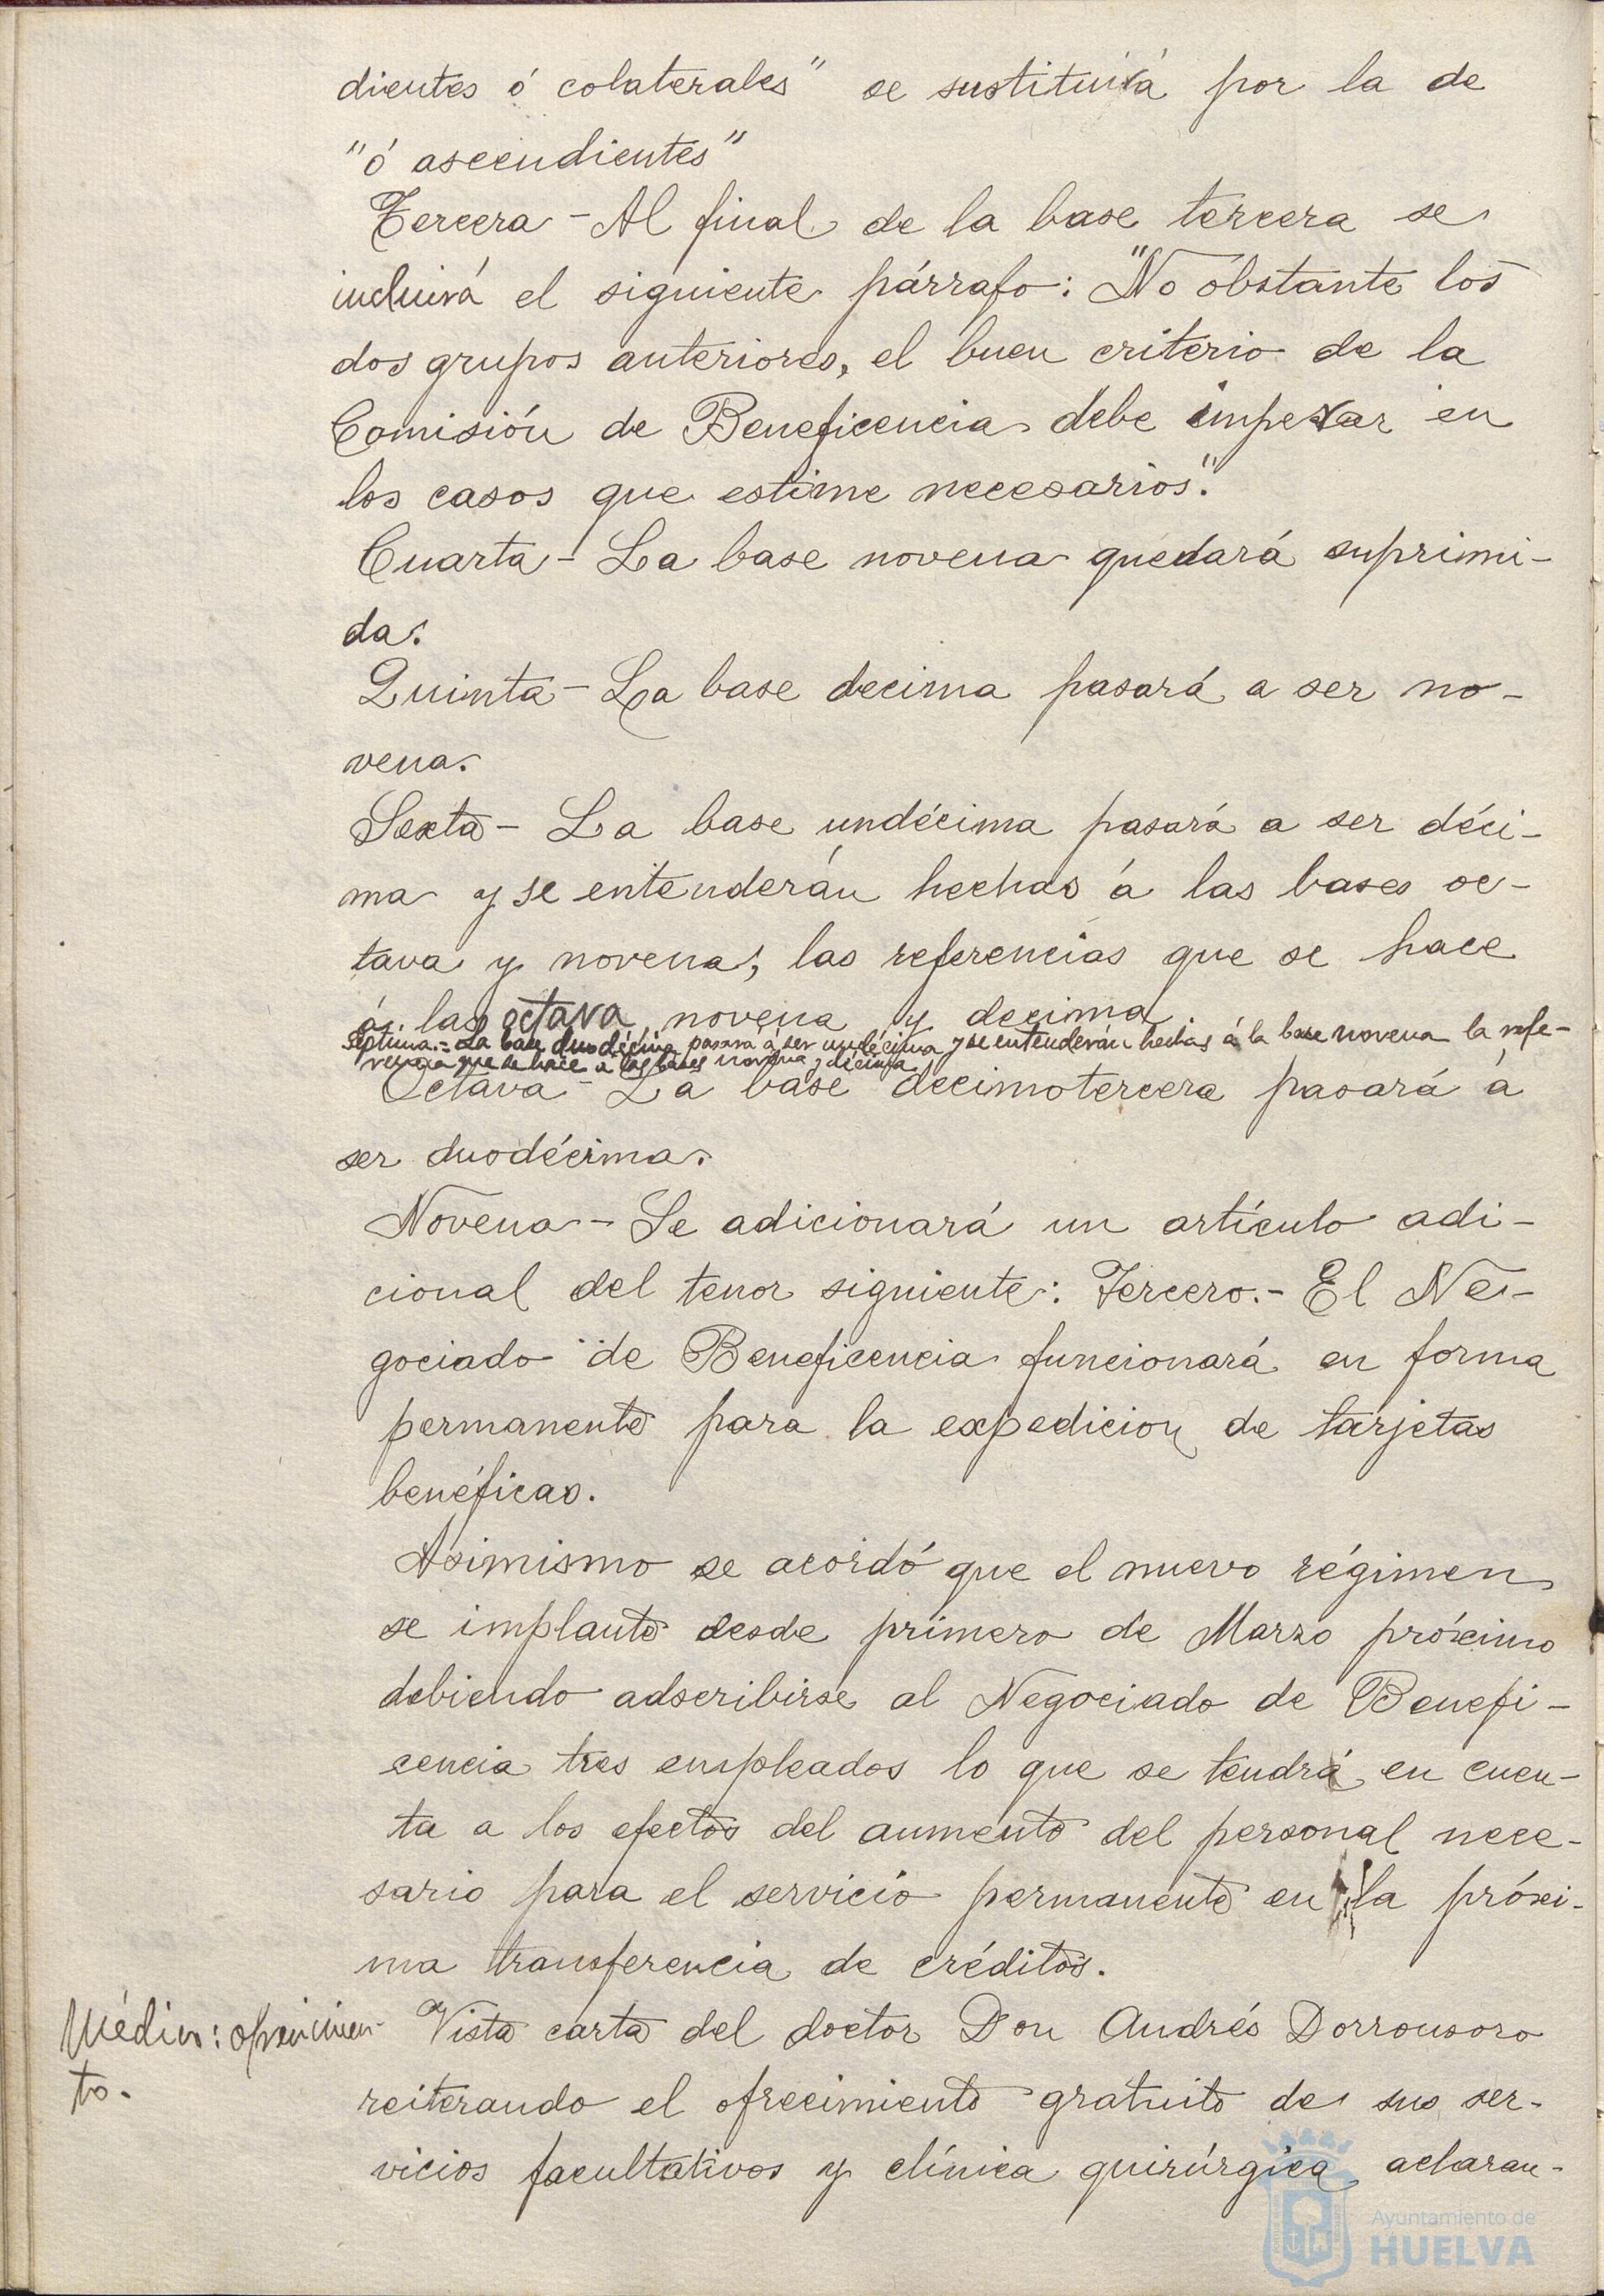 dientes ó colaterales" se sustituirá por la de
"ó ascendientes"
Tercera - Al final de la base tercera se
incluirá el siguiente párrafo: "No obstante los
dos grupos anteriores, el buen criterio de la
Comisión de Beneficencia debe imperar en
los casos que estime necesarios".
Cuarta - La base novena quedará suprimi-
da.
Quinta - La base decima pasará a ser no-
vena.
Sexta - La base undécima pasará a ser déci-
ma y se entenderán hechas á las bases oc-
tava y novena, las referencias que se hace
á las octava, novena y decima
Septima.= La base duodécima pasará á ser undécima y se entenderán hechas á la base novena la refe-
rencia que se hace á las bases novena y décima
Octava - La base decimotercera pasará á
ser duodécima.
Novena - Se adicionará un artículo adi-
cional del tenor siguiente: Tercero.- El Ne-
gociado de Beneficencia funcionará en forma
permanente para la expedicion de tarjetas
benéficas.
Asimismo se acordó que el nuevo régimen
se implante desde primero de Marzo próximo
debiendo adscribirse al Negociado de Benefi-
cencia tres empleados lo que se tendrá en cuen-
ta a los efectos del aumento del personal nece-
sario para el servicio permanente en la próxi-
ma transferencia de créditos.
Médico: ofrecimien-
to.
Vista carta del doctor Don Andrés Dorronsoro
reiterando el ofrecimiento gratuito de sus ser-
vicios facultativos y clínica quirúrgica, aclaran-
Ayuntamiento de
HUELVA